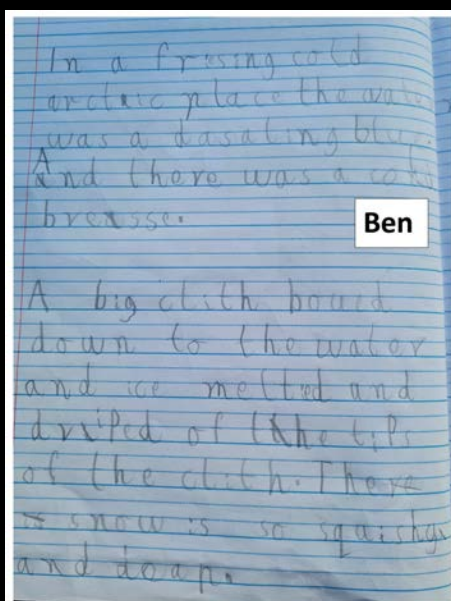 In a frising cold
arctric place the wate
was a dasaling blue.
And there was a cold
breasse.
Ben
A big clith boued
down to the water
and ice melted and
driped of the tips
of the clith. There
snow is so squishy
and deap.